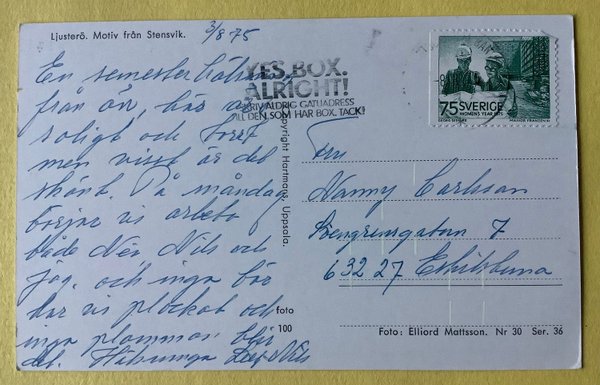 Ljusterö. Motiv från Stensvik.
3/8 75
En semester hälsning
från ön, här är
soligt och torrt
men visst är det
skönt. På måndag
börjar vi arbeta
både Nils och
jag, och inga bär
har vi plockat och
inga plommon blir
det. Hälsningar
YES, BOX.
ALRIGHT!
SKRIV ALDRIG GATUADRESS
TILL DEN SOM HAR BOX. TACK!
75 SVERIGE
WOMENS YEAR 1975
Copyright Hartmans, Uppsala.
Fru
Nanny Carlsson
7
632 27 Eskilstuna
foto
100
Foto: Elliord Mattsson. Nr 30 Ser. 36